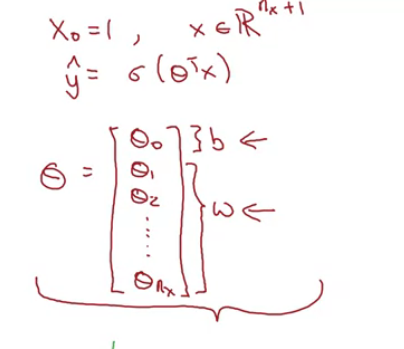 x₀ = 1, x ∈ ℝⁿˣ⁺¹
ŷ = σ(θᵀx)
θ = [θ₀ } b ←
θ₁
θ₂
⋮
θₙₓ] } w ←